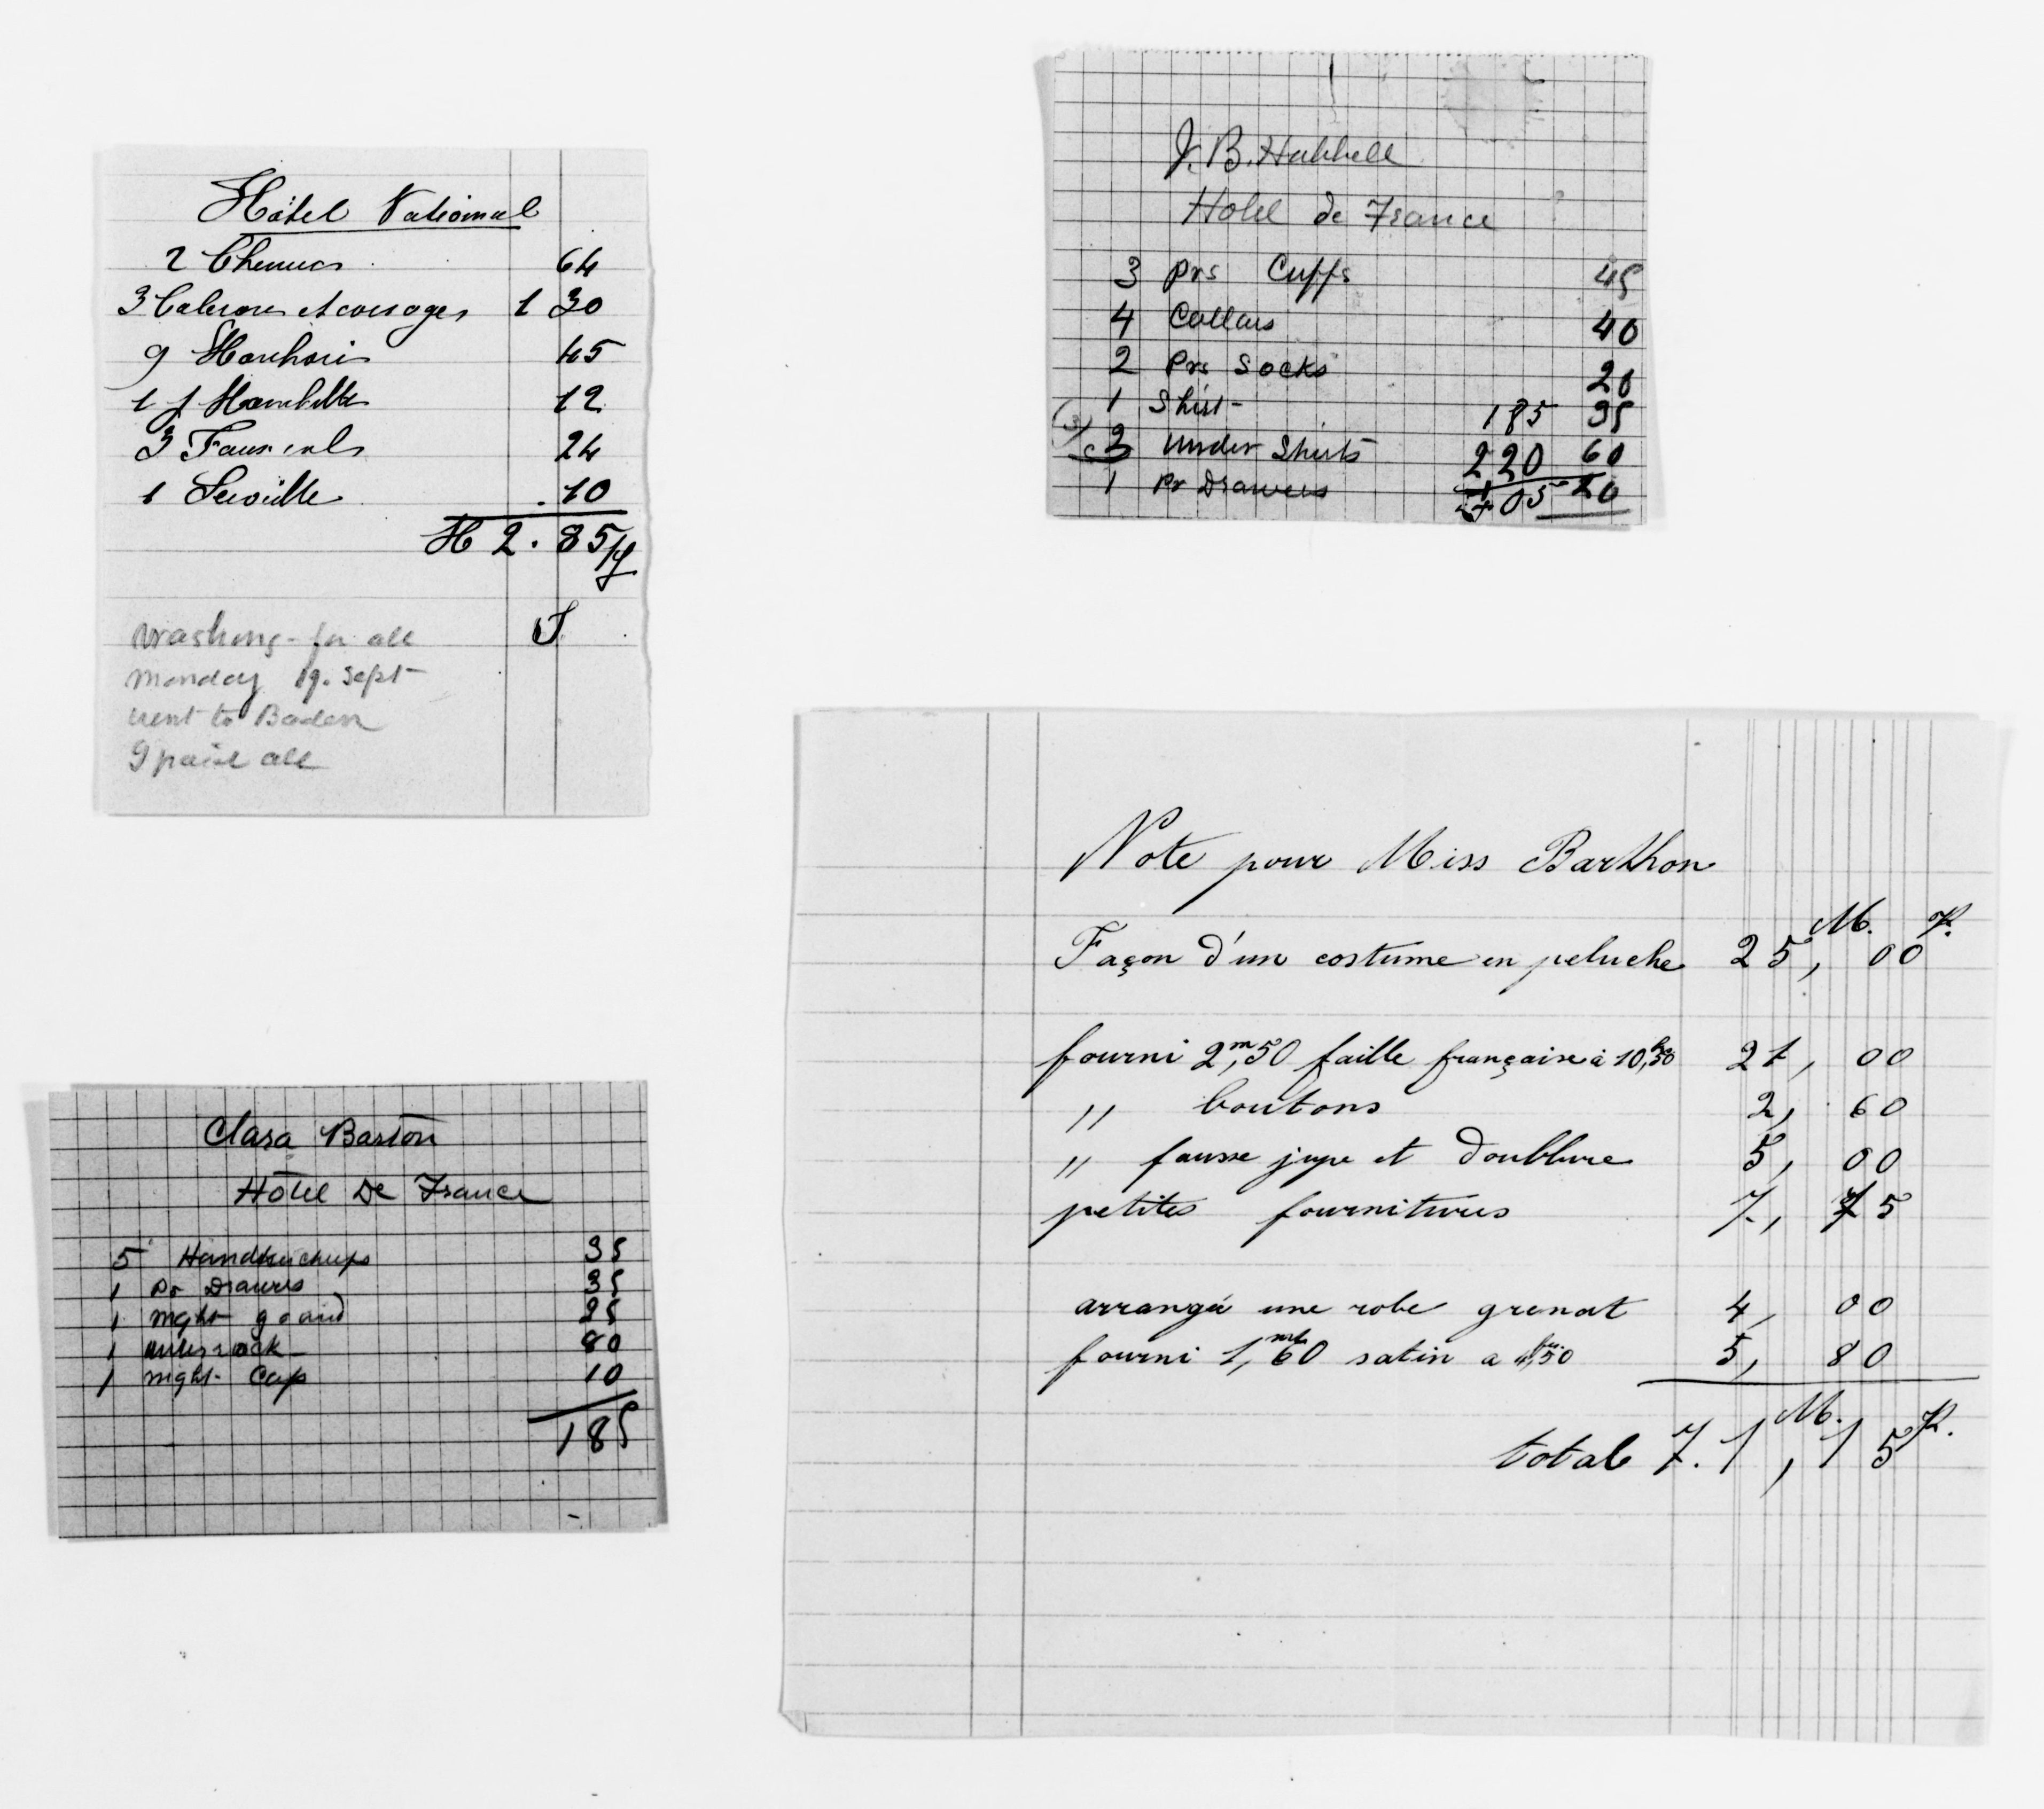 Hôtel National
2 Chemises 64
3 Calecons et corsages 1 30
9 Mouchoirs 45
1 12
3 Faux cols 24
1 Serviette .10
2.85
washing - for all
Monday 19. Sept -
went to Baden
I paid all
J. B. Hubbell
Hotel de France
3 prs Cuffs 45
4 Collars 40
2 Prs Socks 20
1 Shirt - 185 35
(3) 3 under Shirts 220 60
1 Pr Drawers 4 05 20
Clara Barton
Hotel De France
5 Handkerchiefs 35
1 Pr Drawers 35
1 night gound 25
1 80
1 night - Cap 10
185
Note pour Miss Barthon
M. P.
Façon d'un costume en peluche 25, 00
fourni 2,m50 faille française à 10,50 21, 00
" boutons 2, 60
" fausse jupe et doublure 5, 00
petites fournitures 7, 75
arrangé une robe grenat 4, 00
fourni 1,mt60 satin a 4,50 5, 80
total 7.1,M. 15 P.